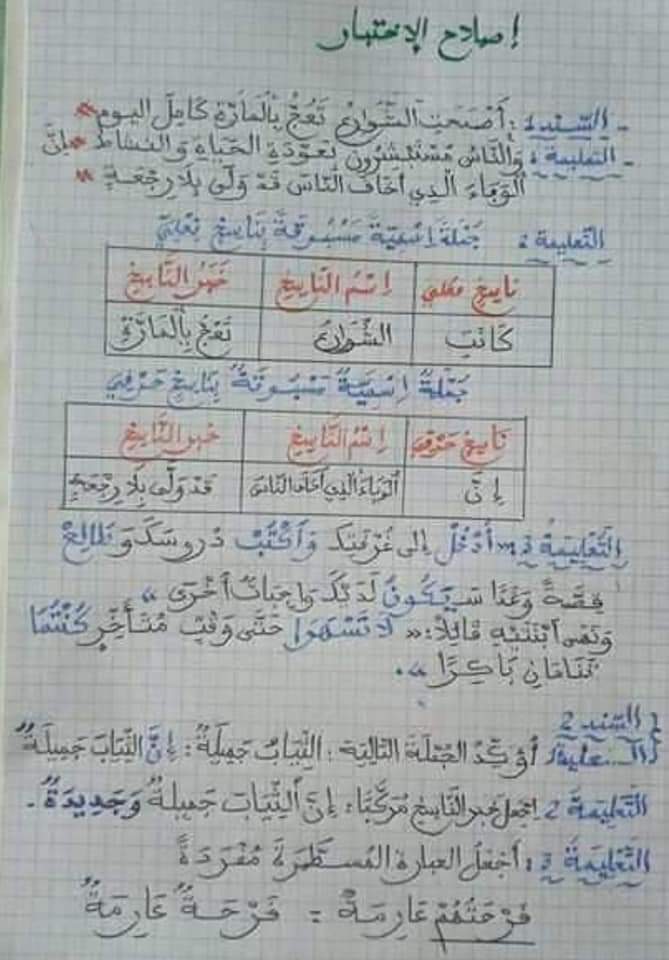 إصلاح الإختبار
- السند 1: أَصْبَحَتِ الشَّوَارِعُ تَعُجُّ بِالْمَارَّةِ كَامِلَ اليوم
- التعليمة 1: وَالنَّاسُ مُسْتَبْشِرُونَ بِعَوْدَةِ الحَيَاةِ وَالنشاط إِنَّ
الْوَبَاءَ الَّذِي أَخَافَ النَّاسَ قَدْ وَلَّى بِلَا رَجْعَةٍ
التعليمة 2: جُمْلَةٌ اِسْمِيَّةٌ مَسْبُوقَةٌ بِنَاسِخٍ فِعْلِيّ
نَاسِخ فعلي اِسْمُ النَّاسِخِ خَبَرُ النَّاسِخِ
كَانَتِ الشَّوَارِعُ تَعُجُّ بِالْمَارَّةِ
جُمْلَةٌ اِسْمِيَّةٌ مَسْبُوقَةٌ بِنَاسِخٍ حَرْفِيّ
نَاسِخ حَرْفِيّ اِسْمُ النَّاسِخِ خبر النَّاسِخِ
إِنَّ الْوَبَاءَ الَّذِي أَخَافَ النَّاسَ قَدْ وَلَّى بِلَا رَجْعَةٍ
التَّعْلِيمَةُ 3: «أُدْخُلْ إِلى غُرْفَتِكَ وَاُكْتُبْ دُرُوسَكَ وَطَالِعْ
قِصَّةً وَغَدًا سَيَكُونُ لَدَيْكَ وَاجِبَاتٌ أُخْرَى»
وَنَهَى اِبْنَتَيْهِ قَائِلًا: «لَا تَسْهَرَا حَتَّى وَقْتٍ مُتَأَخِّرٍ كُنْتُمَا
تَنَامَانِ بَاكِرًا».
السند 2
التعليمة 1: أُوَكِّدُ الجُمْلَةَ التَّالِيَةَ: الثِّيَابُ جَمِيلَةٌ: إِنَّ الثِّيَابَ جَمِيلَةٌ
التَّعْلِيمَةُ 2: اجعل خبر النَّاسِخِ مُرَكَّبًا: إِنَّ الثِّيَابَ جَمِيلَةٌ وَجَدِيدَةٌ.
التَّعْلِيمَةُ 3: أَجْعَلُ العِبَارَةَ المُسَطَّرَةَ مُفْرَدَةً
فَرْحَتُهُمْ عَارِمَةٌ = فَرْحَةٌ عَارِمَةٌ